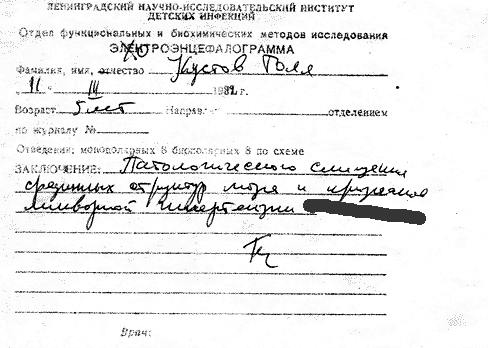 ЛЕНИНГРАДСКИЙ НАУЧНО-ИССЛЕДОВАТЕЛЬСКИЙ ИНСТИТУТ
ДЕТСКИХ ИНФЕКЦИЙ
Отдел функциональных и биохимических методов исследования
ЭЛЕКТРОЭНЦЕФАЛОГРАММА
Фамилия, имя, отчество Кустов Толя
"11" III 198 г.
Возраст 5 лет Направлен отделением
по журналу №
Отведения: монополярных 8 биполярных 8 по схеме
ЗАКЛЮЧЕНИЕ: Патологического смещения
срединных структур мозга и признаков
ликворной гипертензии
Врач: